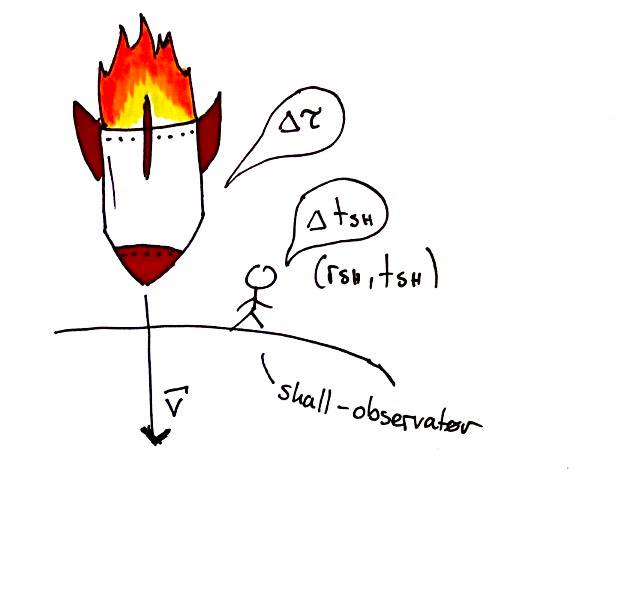 Δτ
Δ tSH
(rSH, tSH)
v⃗
skall-observatør